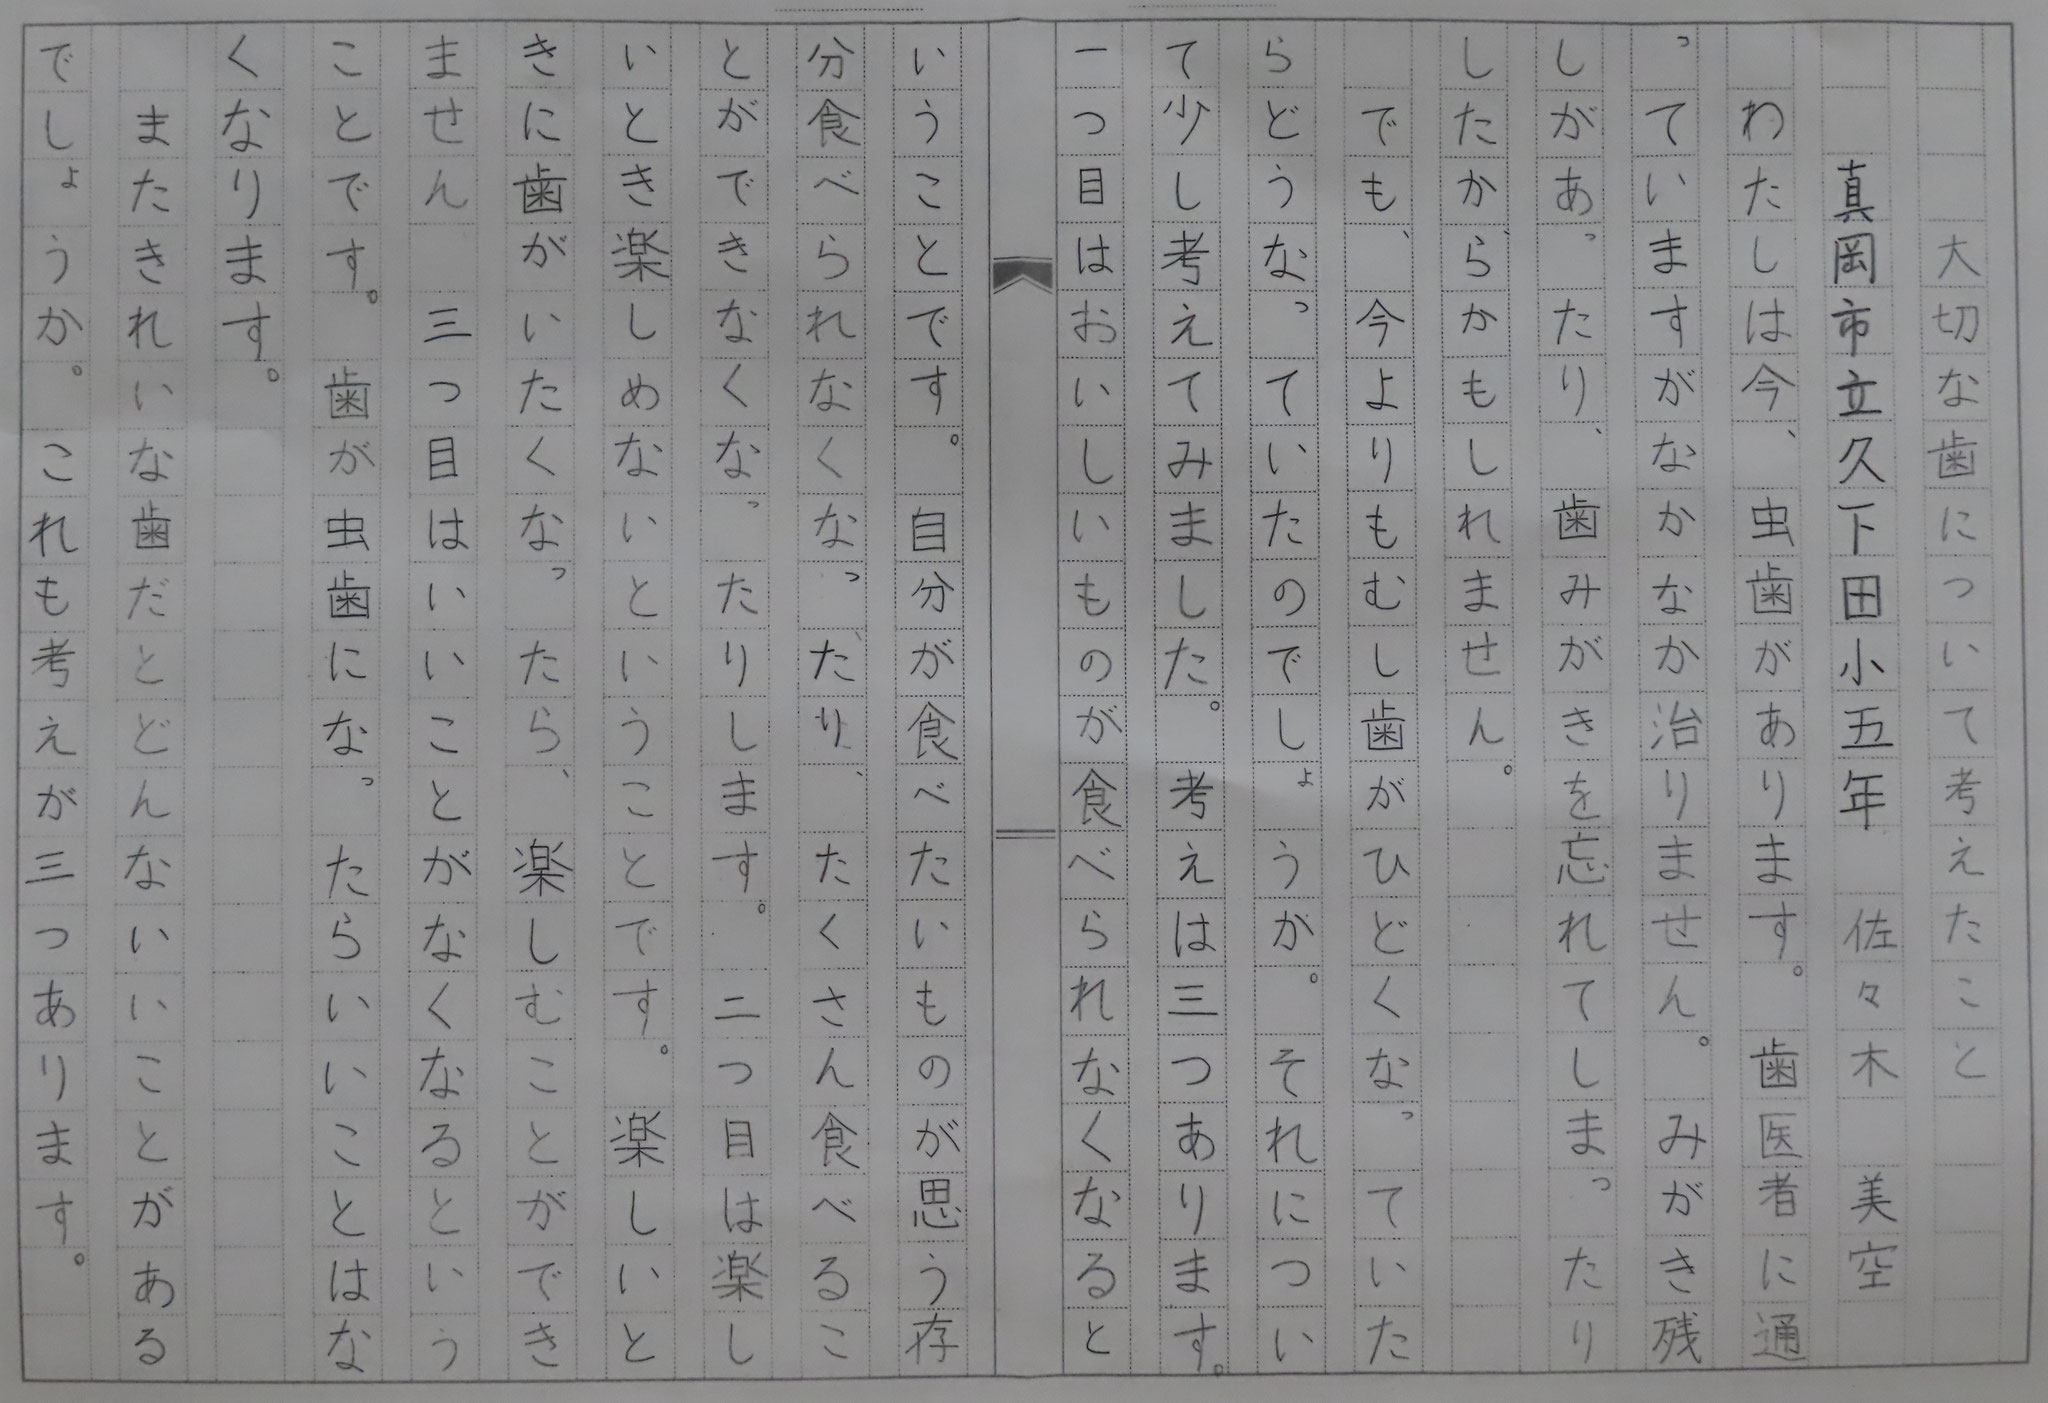 大切な歯について考えたこと
真岡市立久下田小五年 佐々木 美空
わたしは今、虫歯があります。歯医者に通
っていますがなかなか治りません。みがき残
しがあったり、歯みがきを忘れてしまったり
したからかもしれません。
でも、今よりもむし歯がひどくなっていた
らどうなっていたのでしょうか。それについ
て少し考えてみました。考えは三つあります。
一つ目はおいしいものが食べられなくなると
いうことです。自分が食べたいものが思う存
分食べられなくなったり、たくさん食べるこ
とができなくなったりします。二つ目は楽し
いとき楽しめないということです。楽しいと
きに歯がいたくなったら、楽しむことができ
ません 三つ目はいいことがなくなるという
ことです。歯が虫歯になったらいいことはな
くなります。
またきれいな歯だとどんないいことがある
でしょうか。これも考えが三つあります。